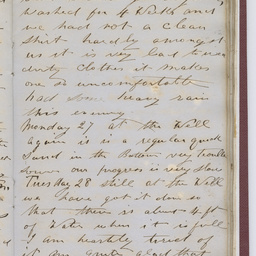 washed for 4 Weeks and
we had not a clean
shirt hardly amongst
us it is very bad
dirty clothes it makes
one so uncomfortable
had some heavy rain
this evening
Monday 27 at the Well
again it is a regular quick
Sand in the Bottom very
our progress is very slow
Tuesday 28 still at the Well
we have got it down so
that there is about 4 ft
of Water when it is full
I am heartily tired of
it am glad that